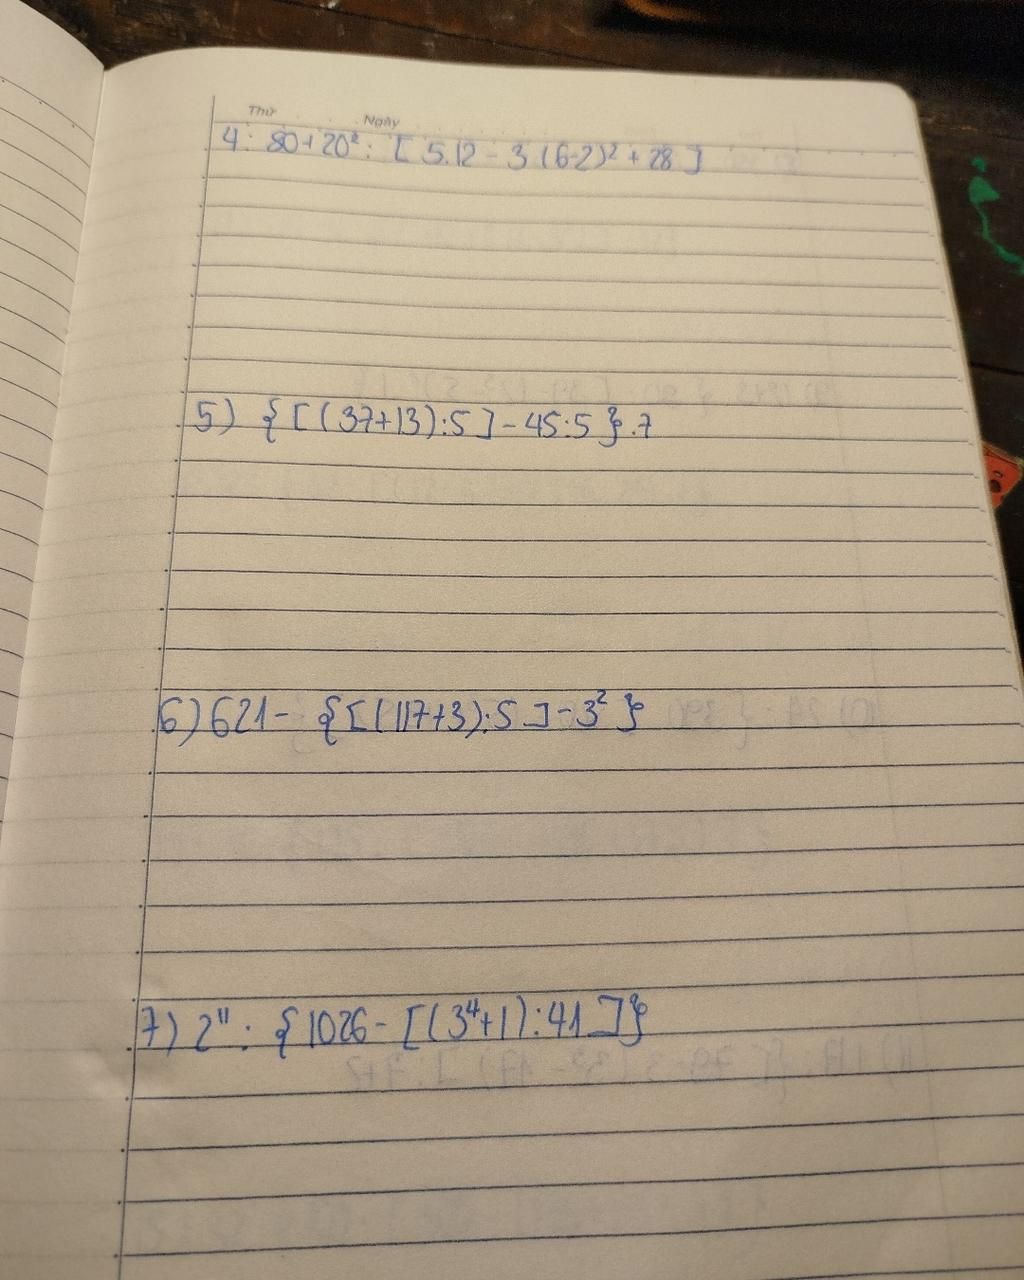 Thứ
Ngày
4: 80+20²: [ 5.12 - 3 (6-2)² + 28 ]
5) { [ ( 37+13) : 5 ] - 45:5 } .7
6) 621 - { [ ( 117+3) : 5 ] - 3² }
7) 2¹¹ : { 1026 - [ ( 3⁴+1) : 41 ] }